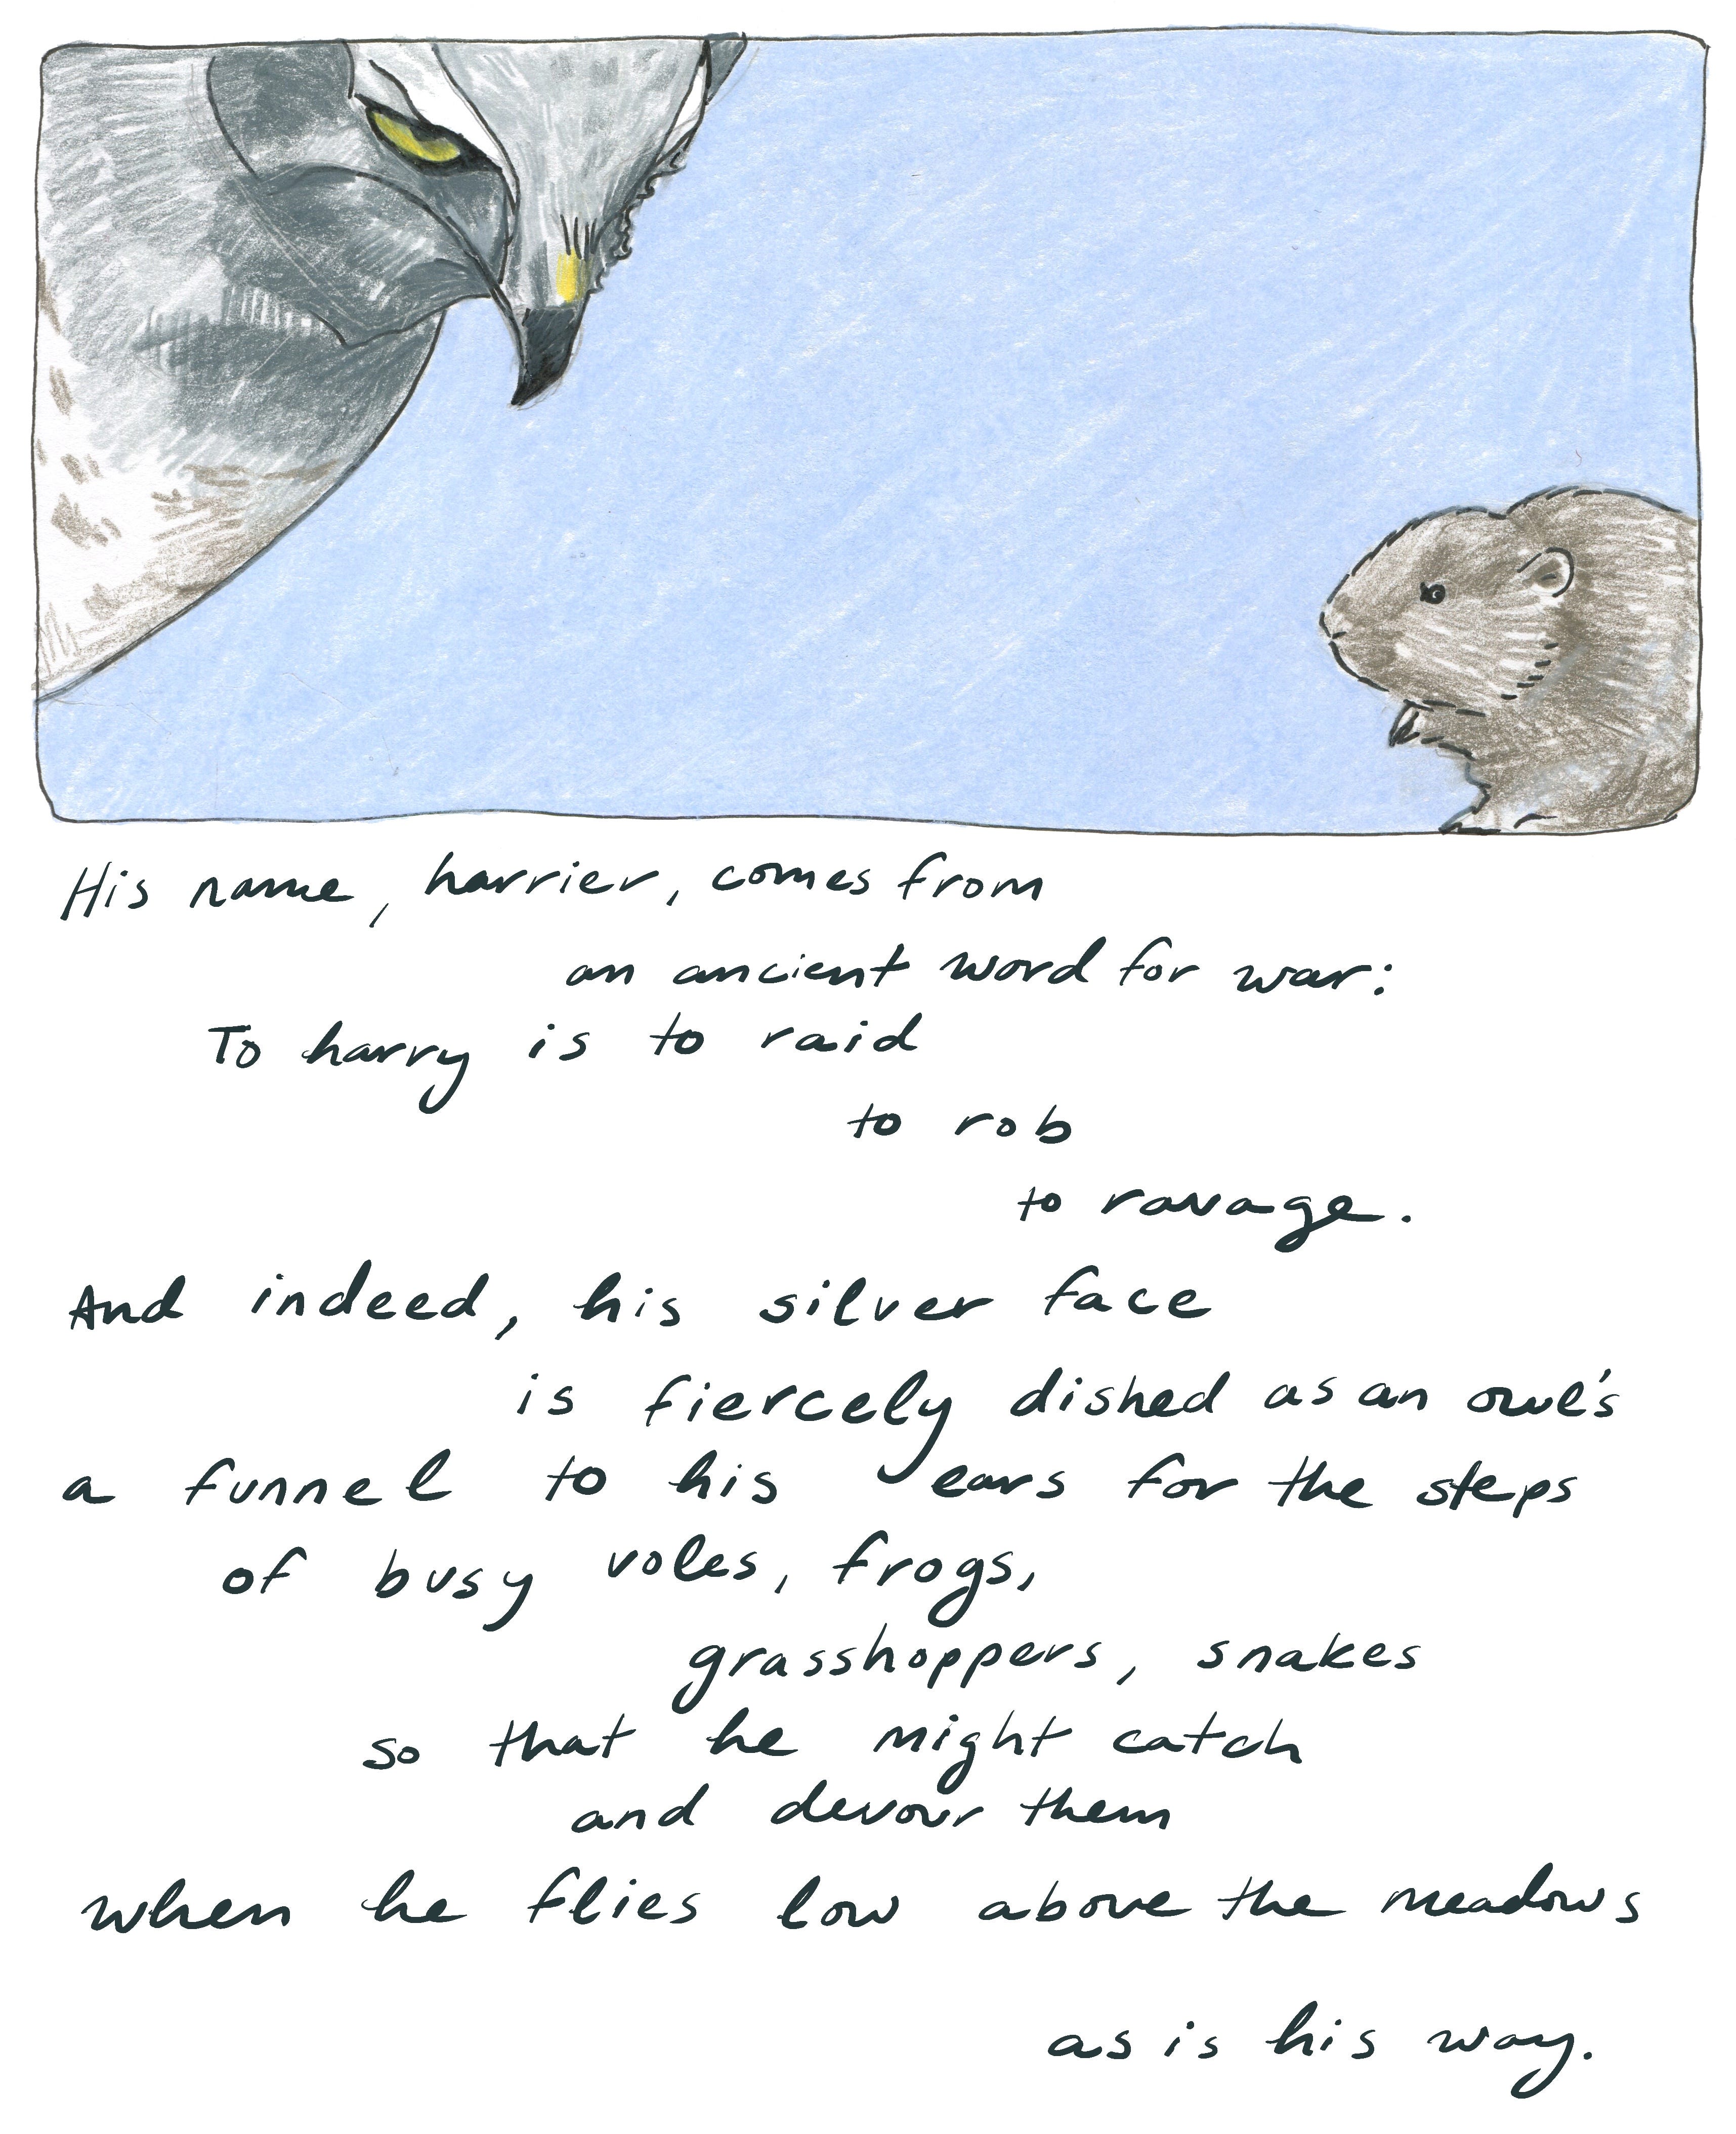 His name, harrier, comes from
an ancient word for war:
To harry is to raid
to rob
to ravage.
And indeed, his silver face
is fiercely dished as an owl's
a funnel to his ears for the steps
of busy voles, frogs,
grasshoppers, snakes
so that he might catch
and devour them
when he flies low above the meadows
as is his way.